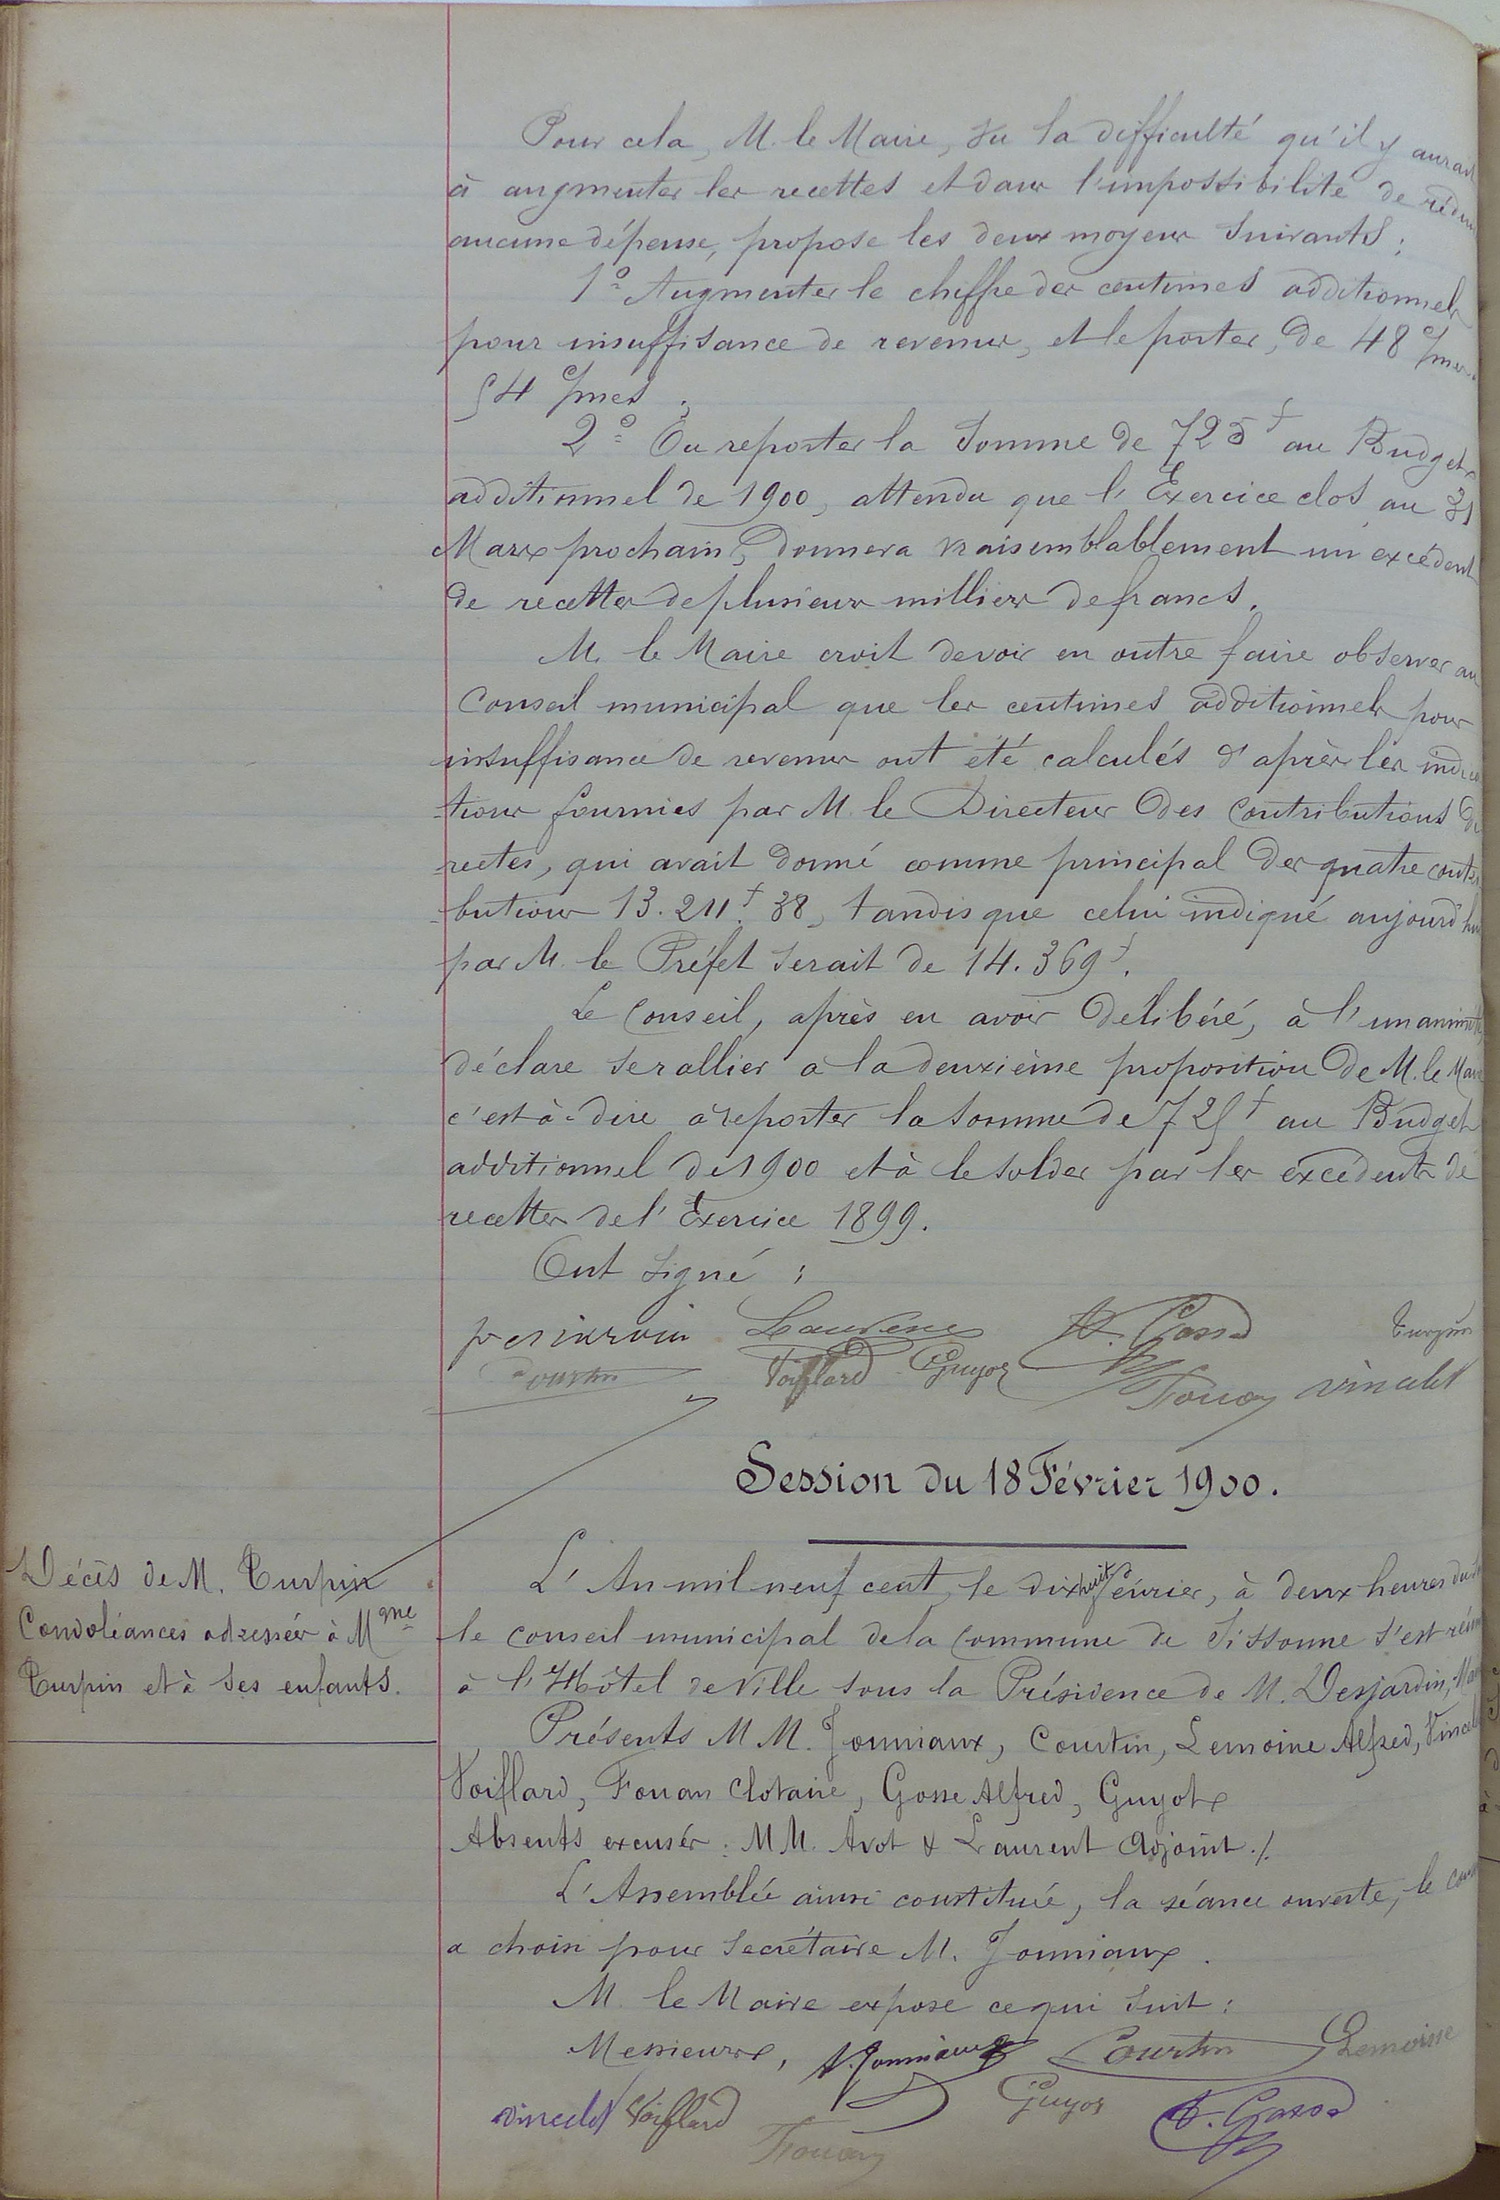 Pour cela, M. le Maire, vu la difficulté qu'il y aurait
à augmenter les recettes et dans l'impossibilité de rédui
aucune dépense, propose les deux moyens suivants :
1° Augmenter le chiffre des centimes additionnels
pour insuffisance de revenus, et le porter, de 48 c/mes à
54 c/mes ;
2° Ou reporter la somme de 725 f au Budget
additionnel de 1900, attendu que l'Exercice clos au 31
Mars prochain, donnera vraisemblablement un excédent
de recettes de plusieurs milliers de francs.
M. le Maire croit devoir en outre faire observer au
Conseil municipal que les centimes additionnels pour
insuffisance de revenus ont été calculés d'après les indica
-tions fournies par M. le Directeur des Contributions Di
-rectes, qui avait donné comme principal des quatre contri
-butions 13.211 f 38, tandis que celui indiqué aujourd'hui
par M. le Préfet serait de 14.369 f.
Le Conseil, après en avoir délibéré, à l'unanimité,
déclare se rallier à la deuxième proposition de M. le Maire
c'est-à-dire à reporter la somme de 725 f au Budget
additionnel de 1900 et à le solder par les excédents de
recettes de l'Exercice 1899.
Ont signé :
Laurent A. Gosse Turpin
Courtin Voiflard Guyot Fouan Vincelet
Session du 18 Février 1900.
Décès de M. Turpin
Condoléances adressées à Mme
Turpin et à ses enfants.
L'An mil neuf cent, le dix huit Février, à deux heures du
le conseil municipal de la Commune de Sissonne s'est réuni
à l'Hôtel de Ville sous la Présidence de M. Desjardin, Maire
Présents MM. Jonniaux, Courtin, Lemoine Alfred, Vincelet
Voiflard, Fouan Clotaire, Gosse Alfred, Guyot
Absents excusés : MM. Avot & Laurent Adjoint ./.
L'Assemblée ainsi constituée, la séance ouverte, le Cons
a choisi pour Secrétaire M. Jonniaux.
M. le Maire expose ce qui suit :
Messieurs, A. Jonniaux Courtin Lemoine
Vincelet Voiflard Guyot A. Gosse
Fouan